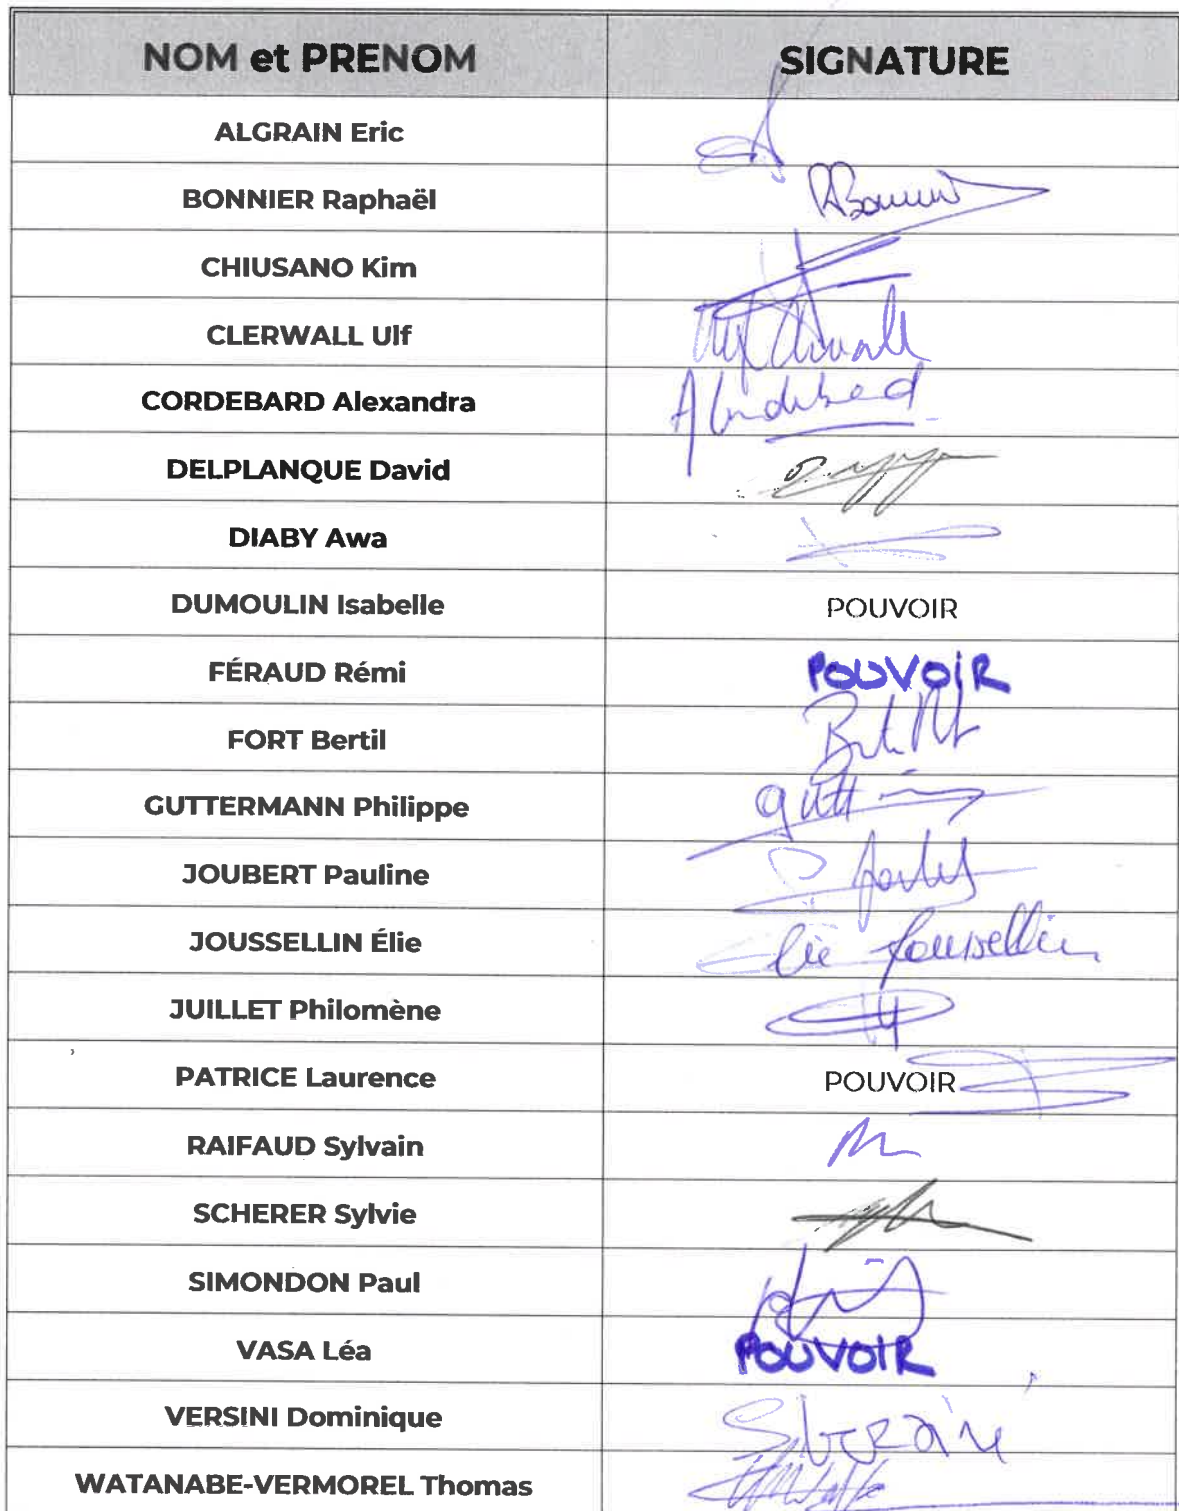 NOM et PRENOM SIGNATURE
ALGRAIN Eric
BONNIER Raphaël RBonnier
CHIUSANO Kim
CLERWALL Ulf Ulf Clerwall
CORDEBARD Alexandra A Cordebard
DELPLANQUE David
DIABY Awa
DUMOULIN Isabelle POUVOIR
FÉRAUD Rémi POUVOIR
FORT Bertil
GUTTERMANN Philippe
JOUBERT Pauline
JOUSSELLIN Élie Elie Joussellin
JUILLET Philomène
PATRICE Laurence POUVOIR
RAIFAUD Sylvain
SCHERER Sylvie
SIMONDON Paul
VASA Léa POUVOIR
VERSINI Dominique
WATANABE-VERMOREL Thomas